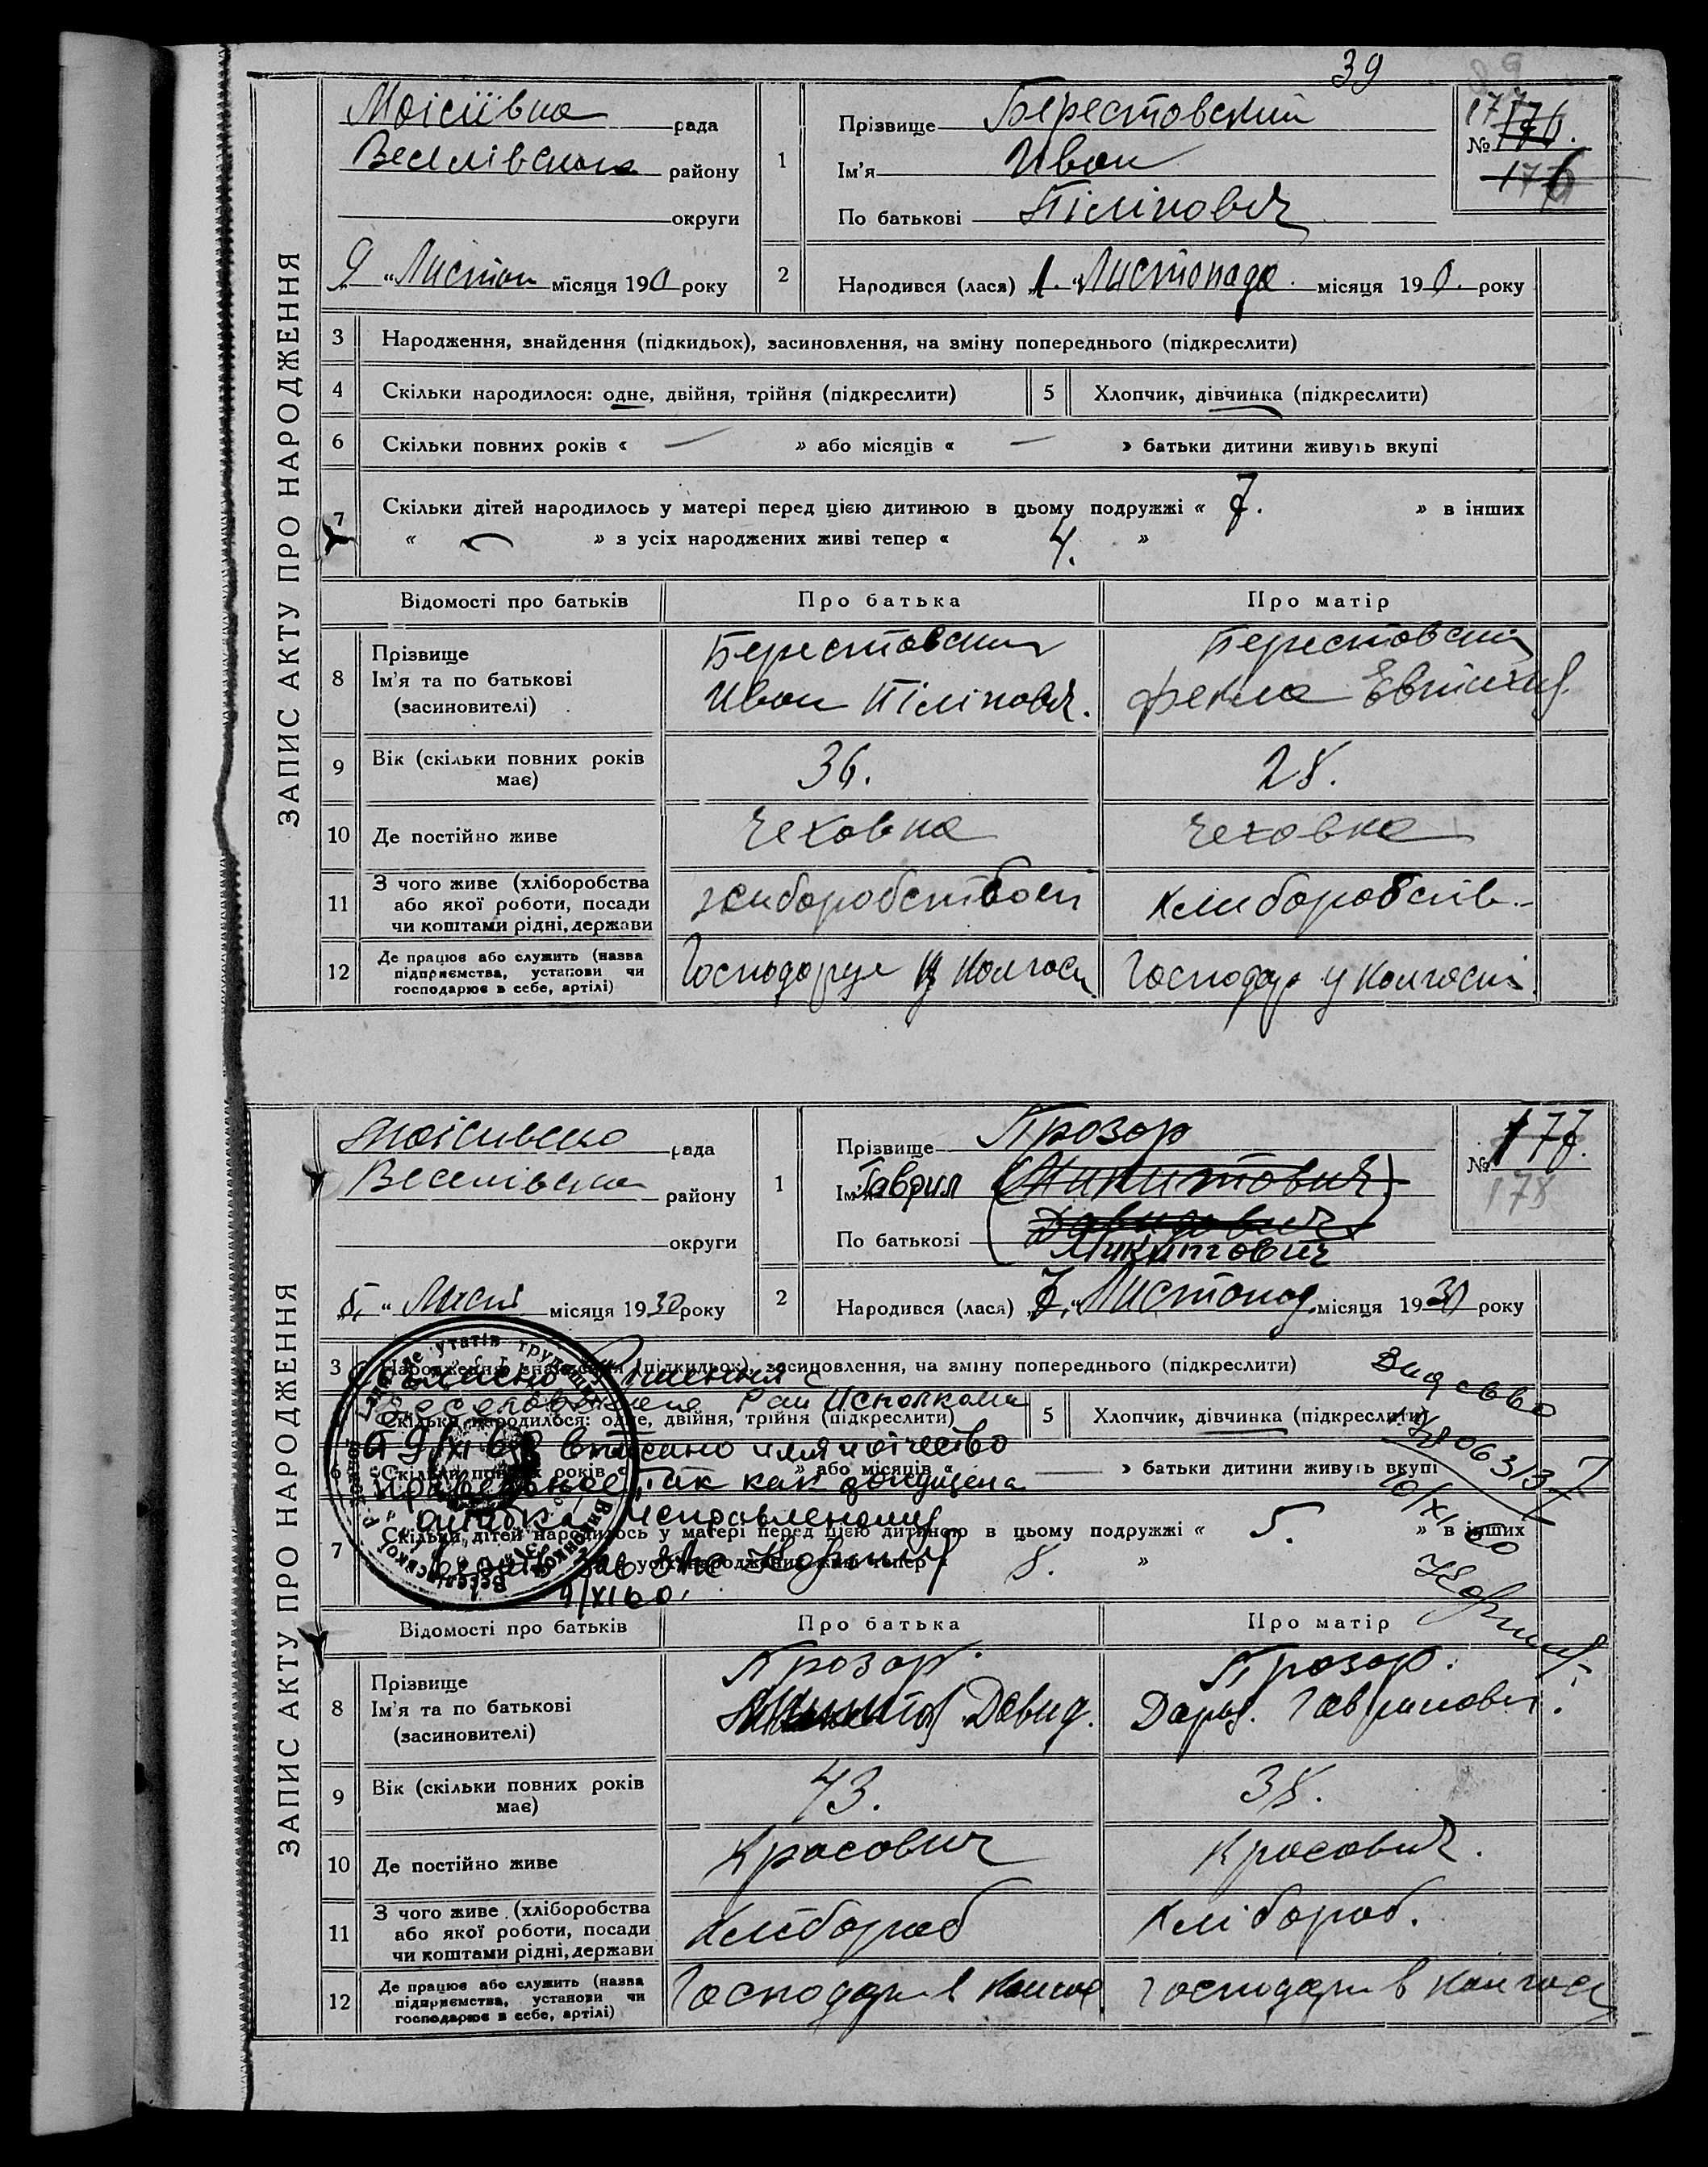 39
ЗАПИС АКТУ ПРО НАРОДЖЕННЯ
Моісіївка рада
Веселівского району
округи
9 " Листоп місяця 190 року
1
Прізвище Берестовский
Ім'я Иван
По батькові Піліпович
№ 176.
177
176
2
Народився (лася) „1. " Листопада. місяця 19 0. року
3 Народження, знайдення (підкидьох), засиновлення, на зміну попереднього (підкреслити)
4 Скільки народилося: одне, двійня, трійня (підкреслити) 5 Хлопчик, дівчинка (підкреслити)
6 Скільки повних років « — » або місяців « — » батьки дитини живуть вкупі
7 Скільки дітей народилось у матері перед цією дитиною в цьому подружжі « 7. » в інших
« » з усіх народжених живі тепер « 4. »
Відомості про батьків Про батька Про матір
8 Прізвище
Ім'я та по батькові
(засновителі)
Берестовский
Иван Піліпович.
Берестовски
Фекла
9 Вік (скільки повних років має) 36. 28.
10 Де постійно живе Чеховка Чеховка
11 З чого живе (хліборобства
або якої роботи, посади
чи коштами рідні, держави
хлиборобством Хлиборобств.
12 Де працює або служить (назва
підприємства, установи чи
господарює в себе, артілі)
Господарує в Колгосп Господар у Колгоспі.
ЗАПИС АКТУ ПРО НАРОДЖЕННЯ
Моісивско рада
Веселівско району
округи
5. " Лист місяця 1930 року
1
Прізвище Прозор
Ім'я Гаврил (Микитович)
По батькові (Давидович)
Микитович
№ 177.
178
2
Народився (лася) „7. " Листопад місяця 1930 року
3 Народження, знайдення (підкидьох), засиновлення, на зміну попереднього (підкреслити)
4 Скільки народилося: одне, двійня, трійня (підкреслити) 5 Хлопчик, дівчинка (підкреслити)
6 Скільки повних років « » або місяців « — » батьки дитини живуть вкупі
7 Скільки дітей народилось у матері перед цією дитиною в цьому подружжі « 5. » в інших
з усіх народжених живі тепер « 8. »
Согласно Решения
Веселовского Рай Исполкома
от 9/XI 60 вписано имя и отчество
правельное, так как допущена
ошибка. Исправленому
верить. Зав
9/XI 60.
Вид св-во
10/XI 60
Відомості про батьків Про батька Про матір
8 Прізвище
Ім'я та по батькові
(засновителі)
Прозор.
Давид.
Прозор.
Дарья. Гавриловн.
9 Вік (скільки повних років має) 43. 38.
10 Де постійно живе Красович Красович.
11 З чого живе (хліборобства
або якої роботи, посади
чи коштами рідні, держави
Хлібороб Хлібороб.
12 Де працює або служить (назва
підприємства, установи чи
господарює в себе, артілі)
Господар в Колгос Господар в Колгосп